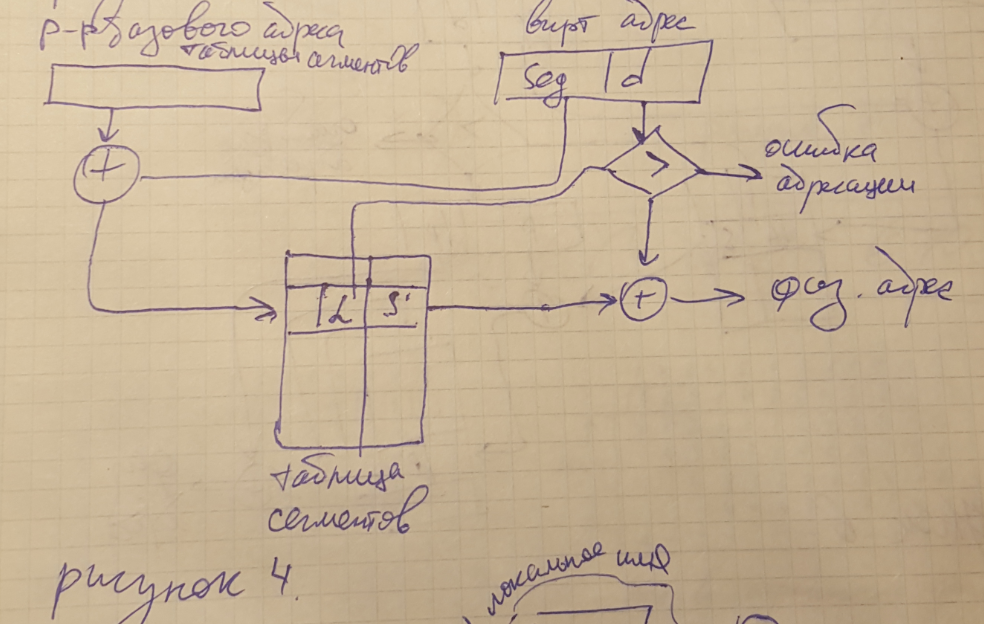 р-р базового адреса
таблицы сегментов
вирт адрес
Seg d
+
>
ошибка
адресации
L S'
+
физ. адрес
таблица
сегментов
рисунок 4.
локальное имя